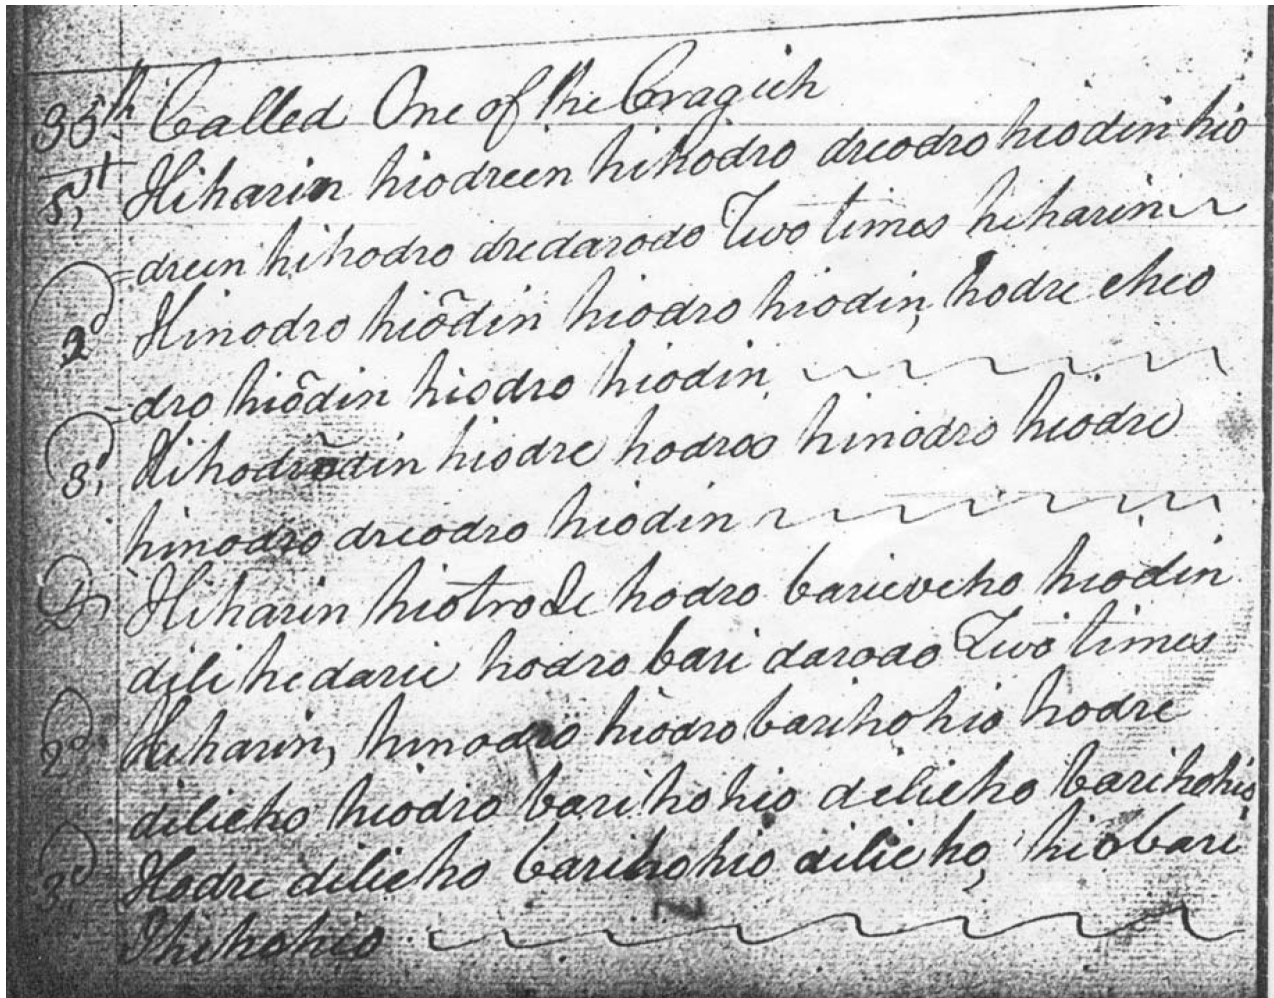 35th Called One of the Cragich
1st Hiharin hiodreen hihodro dreodro hiodin hio
=dreen hihodro dredarodo Two times hiharin
2d Hinodro hiōdin hiodro hiodin, hodre cheo
=dro hiōdin hiodro hiodin
3d Hihodrōdin hiodre hodros hinodro hiodre
hinodro dreodro hiodin
Hiharin hiotrode hodro barieveho hiodin
dili hedarie hodro bari darodo Two times
2d Hiharin, hinodro hiodro barihohio hodre
dilieho hiodro barihohio dilieho barihohio
3d Hodre dilieho barihohio dilieho, hiobari
hihohio